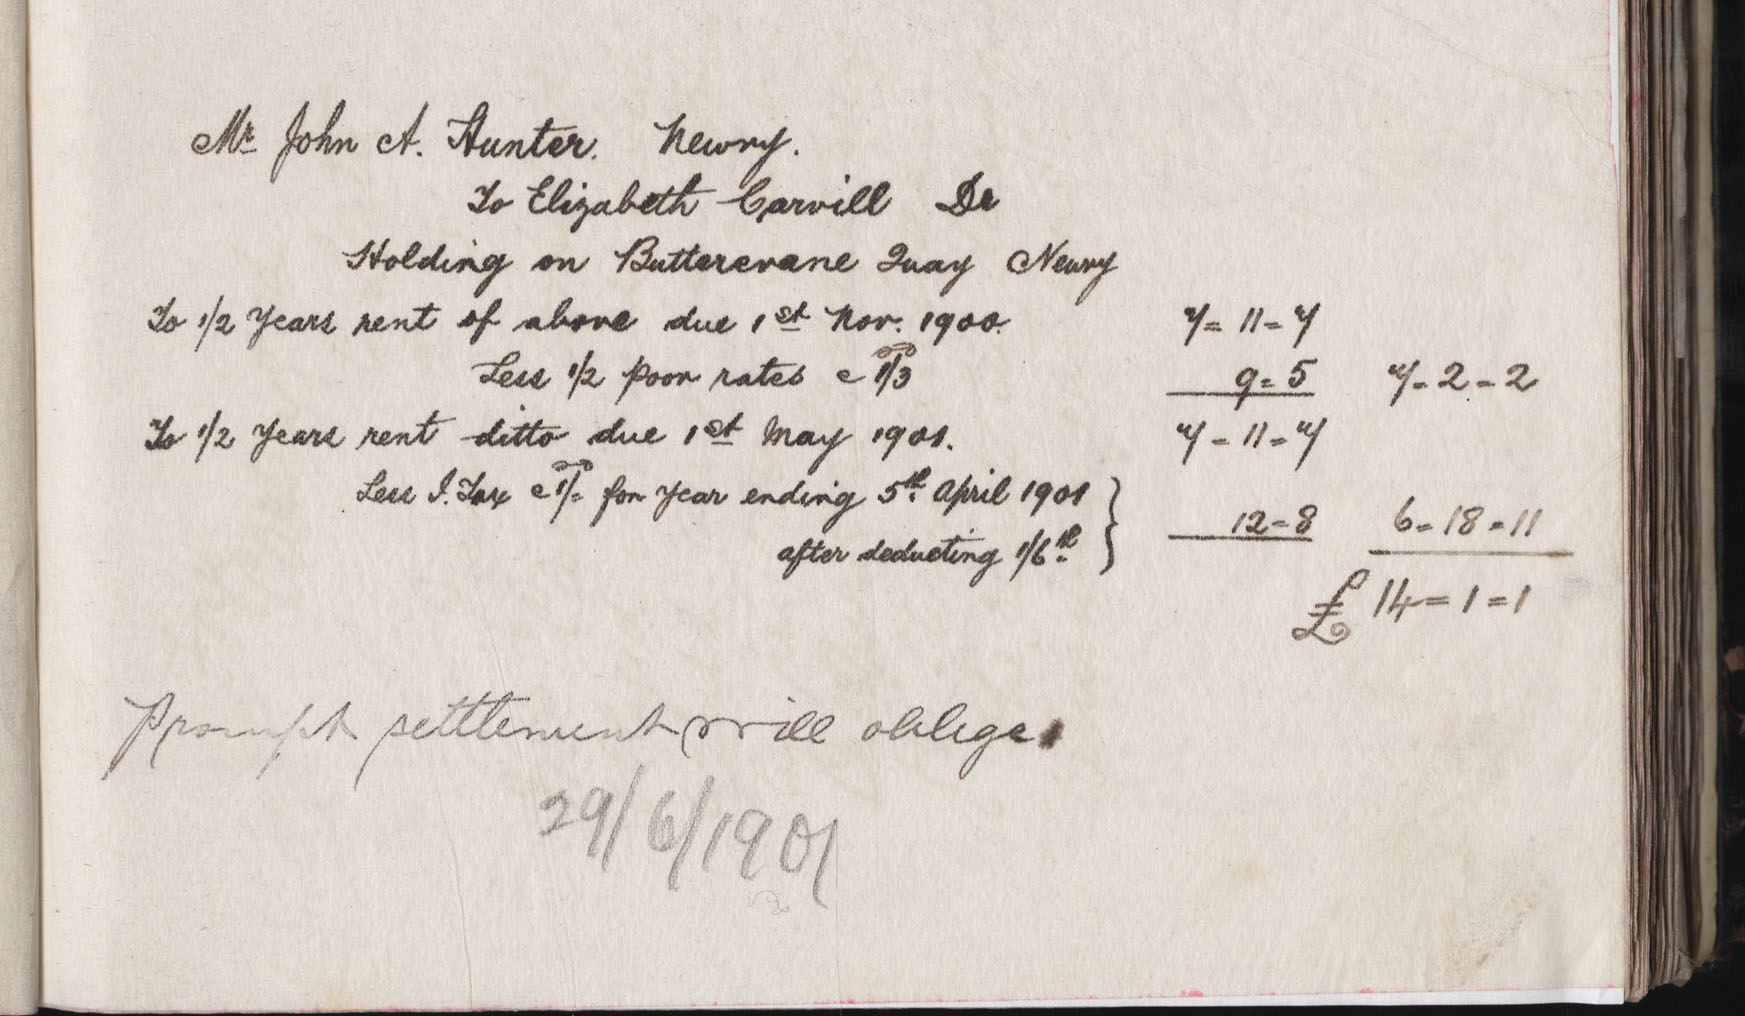 Mr John A. Hunter. Newry.
To Elizabeth Carvill Dr
Holding on Buttercrane Quay Newry
To 1/2 Years rent of above due 1st Nov. 1900. 7=11=7
Less 1/2 poor rates @ 1/3 9=5 7-2-2
To 1/2 Years rent ditto due 1st May 1901. 7-11=7
Less I. Tax @ 1/= for Year ending 5th April 1901
after deducting 1/6th 12-8 6-18-11
£14=1=1
Prompt settlement will oblige.
29/6/1901